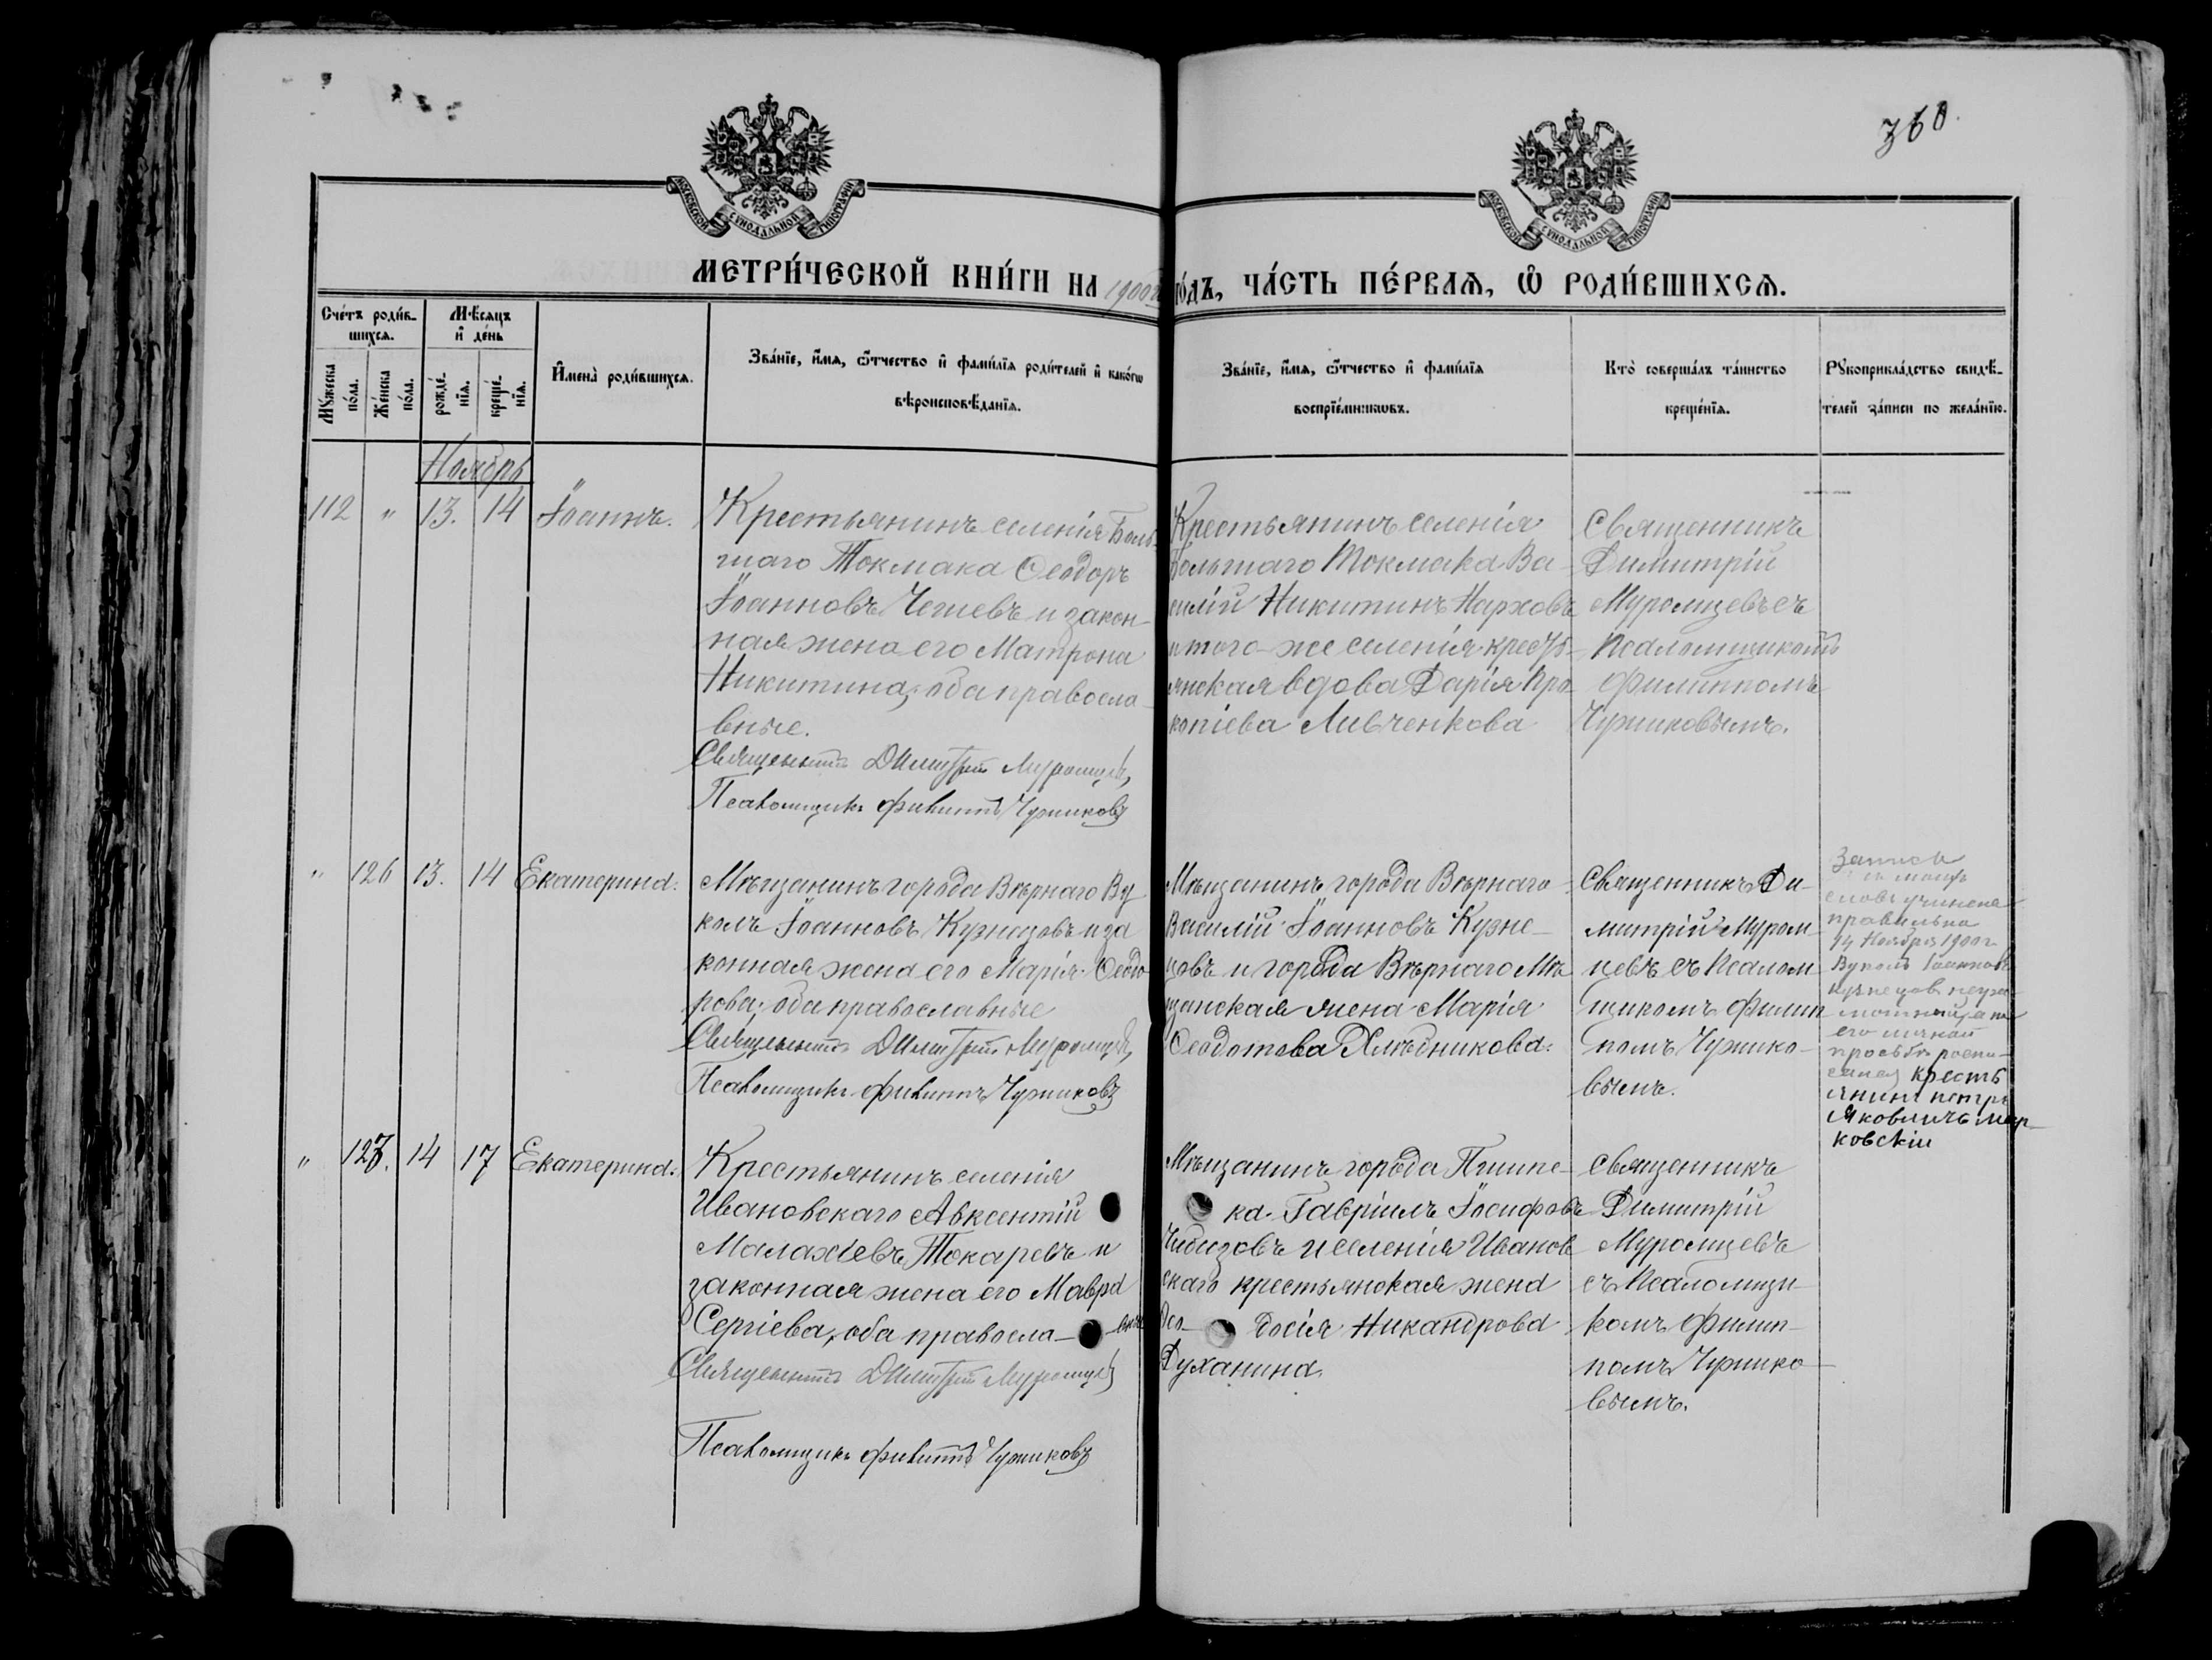 360.
МОСКОВСКОЙ СѴНОДАЛЬНОЙ ТИПОГРАФІИ
МОСКОВСКОЙ СѴНОДАЛЬНОЙ ТИПОГРАФІИ
МЕТРИ́ЧЕСКОЙ КНИ́ГИ НА 1900 го́дъ, ЧА́СТЬ ПЕ́РВАѦ, Ѽ РОДИ́ВШИХСѦ.
Сче́тъ роди́в-
шихсѧ.
Мѣ́сяцъ
и҆ де́нь
Мꙋ́жеска
по́ла.
Же́нска
по́ла.
рожде́-
нїѧ.
креще́-
нїѧ.
И҆мена̀ роди́вшихсѧ.
Зва́нїе, и҆́мѧ, ѻ҆́тчество и҆ фами́лїѧ роди́телей и҆ како́гѡ
вѣроисповѣ́данїѧ.
Зва́нїе, и҆́мѧ, ѻ҆́тчество и҆ фами́лїѧ
воспрїе́мникѡвъ.
Кто̀ соверша́лъ та́инство
креще́нїѧ.
Рꙋкоприкла́дство свидѣ́-
телей за́писи по жела́нїю.
Ноябрь
112 " 13. 14 Іоаннъ.
Крестьянинъ селенія Боль-
шаго Токмака Ѳеодоръ
Іоанновъ Чегиевъ и закон-
ная жена его Матрона
Никитина, оба правосла-
вные.
Священникъ Димитрій Муромцевъ
Псаломщикъ Филиппъ Чуриковъ
Крестьянинъ селенія
Большаго Токмака Ва-
силій Никитинъ Нарховъ
и того-же селенія кресть-
янская вдова Дарія Про-
копіева Ливченкова
Священникъ
Димитрій
Муромцевъ съ
Псаломщикомъ
Филиппомъ
Чуриковымъ.
" 126 13. 14 Екатерина.
Мѣщанинъ города Вѣрнаго Ву-
колъ Іоанновъ Кузнецовъ и за
конная жена его Марія Ѳеодо
рова, оба православные
Священникъ Димитрій Муромцевъ
Псаломщикъ Филиппъ Чуриковъ
Мѣщанинъ города Вѣрнаго
Василій Іоанновъ Кузне-
цовъ и города Вѣрнаго Мѣ
щанская жена Марія
Ѳеодотова Хлѣбникова.
Священникъ Ди-
митрій Муром-
цевъ съ Псалом-
щикомъ Филип
помъ Чурико-
вымъ.
Запись
съ моихъ
словъ учинена
правильно
14 Ноября 1900 г.
Вуколъ Іоанновъ
Кузнецовъ негра-
мотный, а по
его личной
просьбѣ роспи-
сался кресть
янинъ петръ
Яковличъ мар-
ковскіи
" 127. 14 17 Екатерина.
Крестьянинъ селенія
Ивановскаго Авксентій
Малахіевъ Токаревъ и
законная жена его Мавра
Сергіева, оба правосла-вные
Священникъ Димитрій Муромцевъ
Псаломщикъ Филиппъ Чуриковъ
Мѣщанинъ города Пишпе-
ка Гавріилъ Іосифовъ
Чибизовъ и селенія Иванов
скаго крестьянская жена
Ѳео-досія Никандрова
Духанина.
Священникъ
Димитрій
Муромцевъ
съ Псаломщи-
комъ Филип-
помъ Чурико-
вымъ.